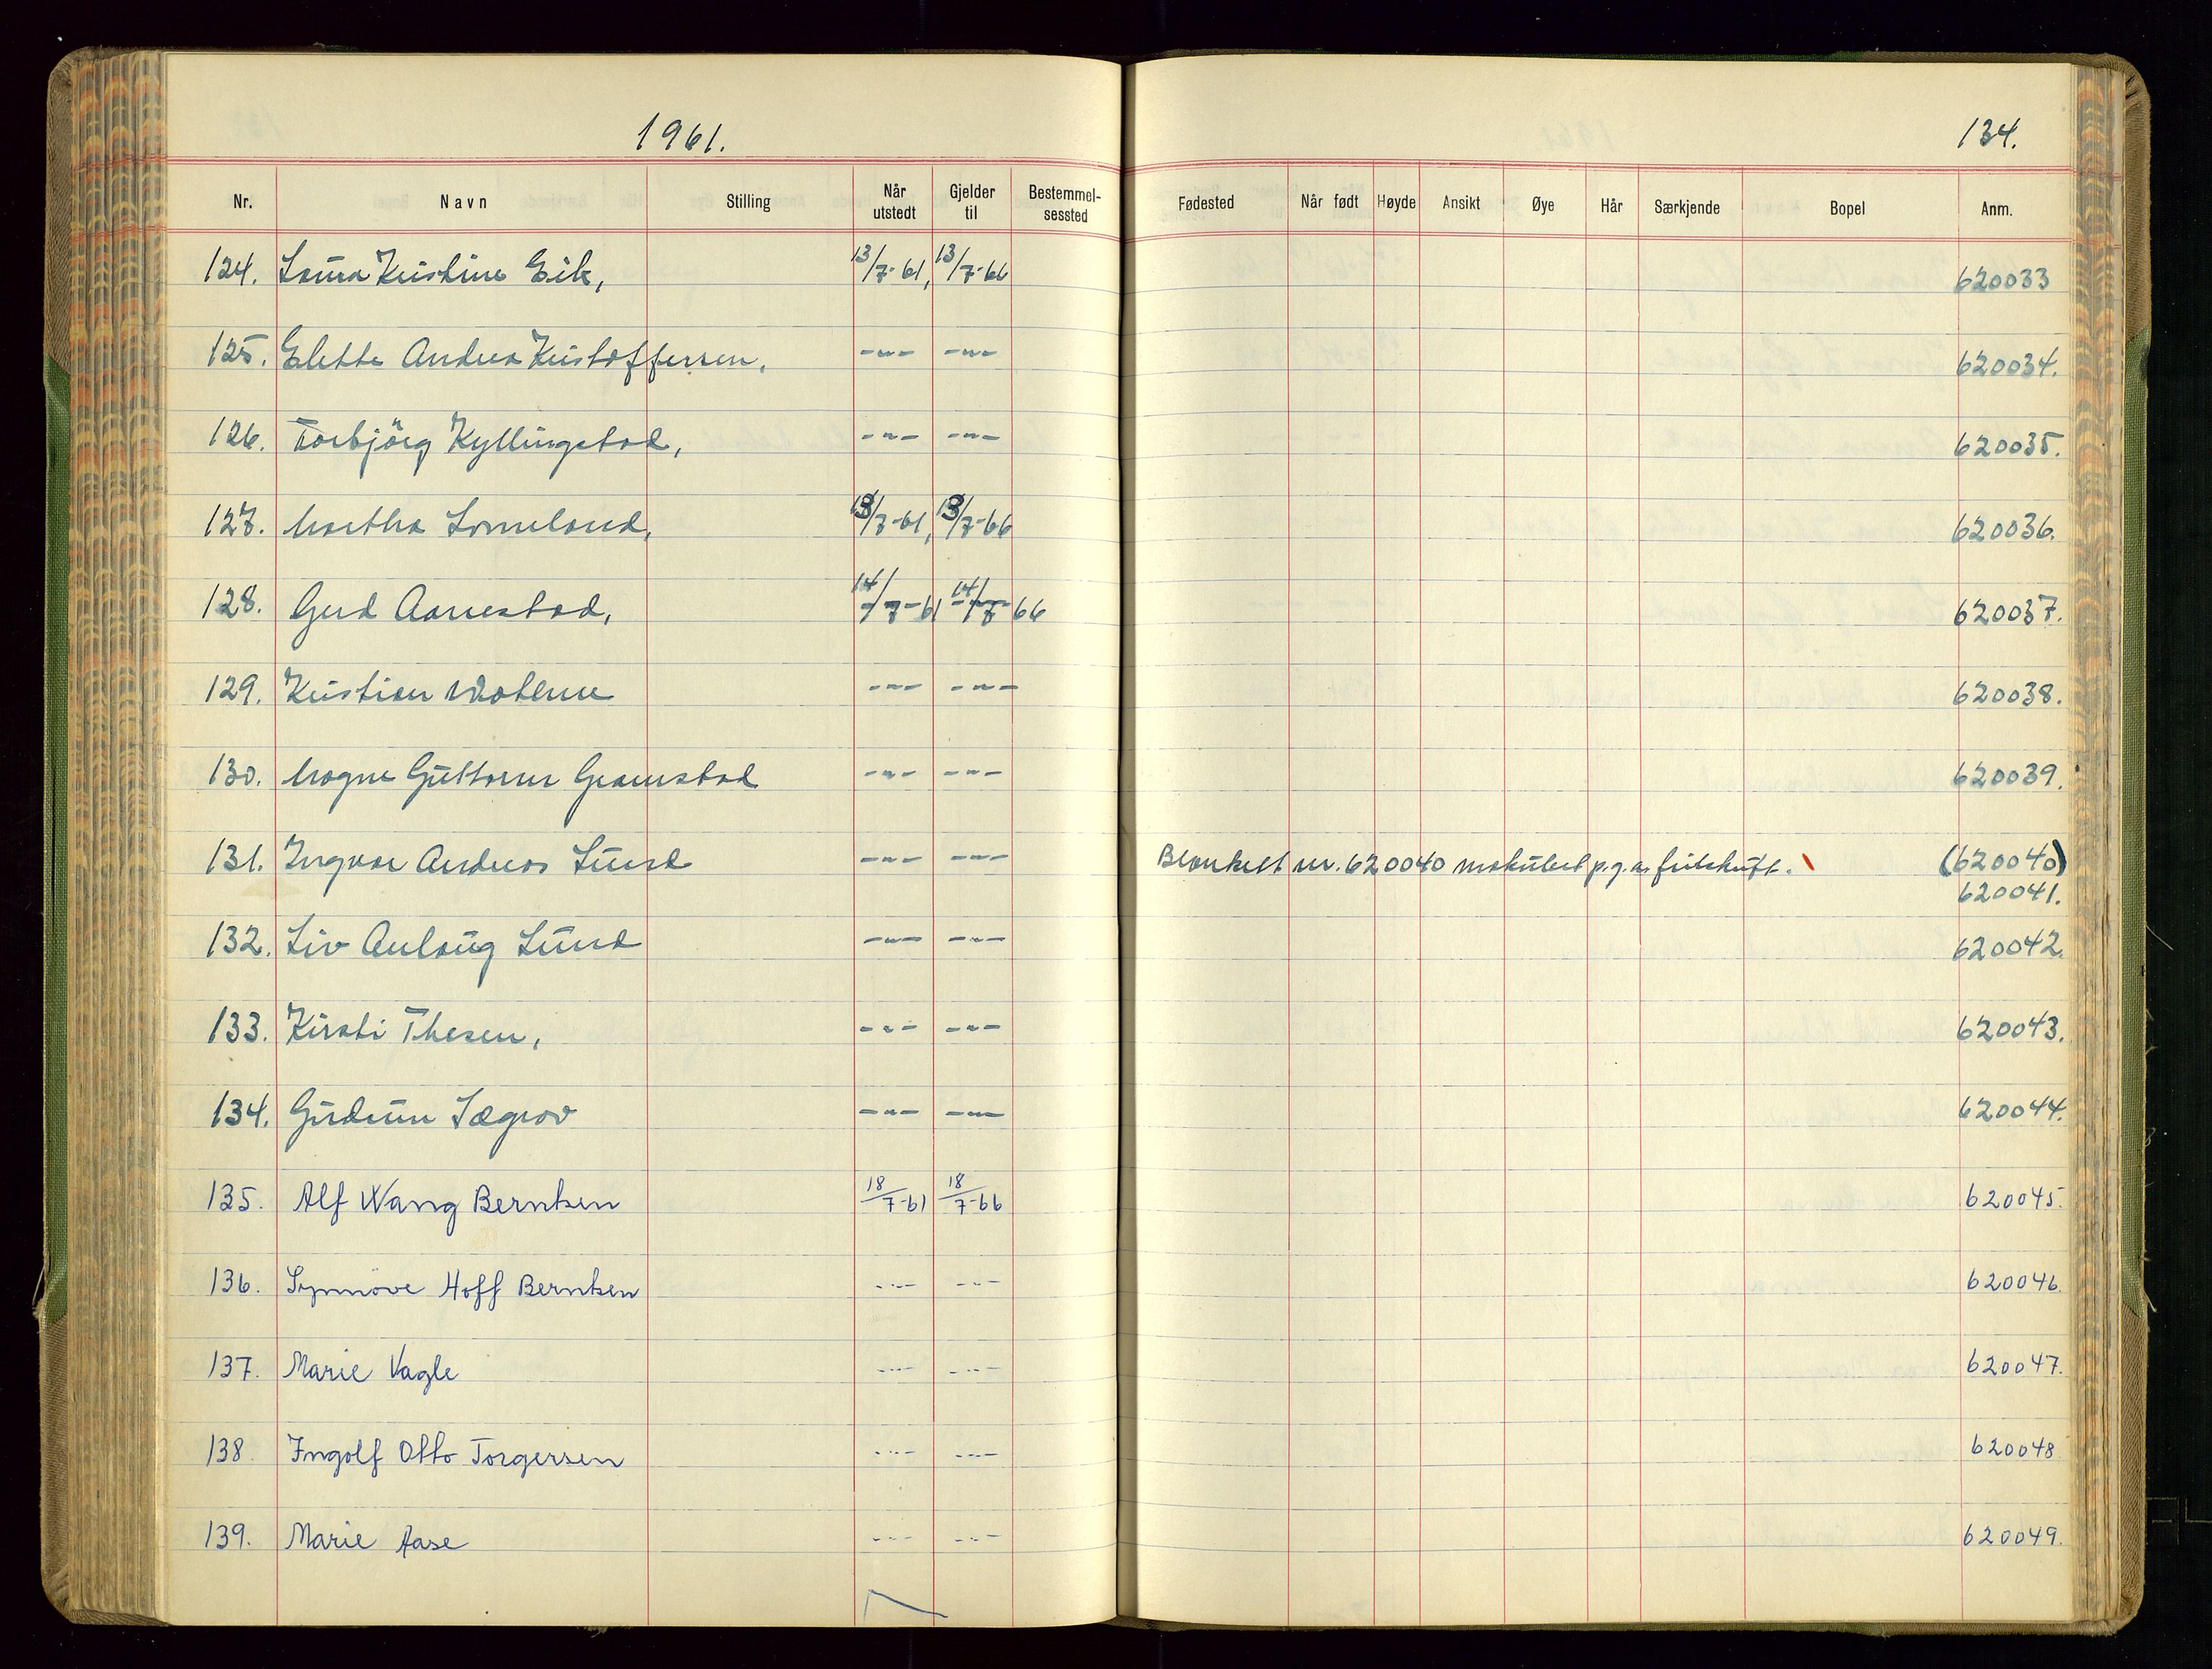 1961.
134.
Nr. Navn Stilling Når utstedt Gjelder til Bestemmel-sessted Fødested Når født Høyde Ansikt Øye Hår Særkjende Bopel Anm.
124. Laura Kristine Eik, 13/7-61, 13/7-66 620033
125. Elette Andrea Kristoffersen, -"- -"- 620034.
126. Torbjörg Kyllingstad, -"- -"- 620035.
127. Martha Lomeland, 13/7-61, 13/7-66 620036.
128. Gerd Aarrestad, 14/7-61 14/7-66 620037.
129. Kristian -"- -"- 620038.
130. Magne Guttorm Gramstad -"- -"- 620039.
131. Ingvar Andreas Lund -"- -"- Blankett nr. 620040 makulert p.g.a. feilskrift. (620040)
620041.
132. Liv Aulaug Lund -"- -"- 620042.
133. Kirsti Thesen, -"- -"- 620043.
134. Gudrun Sægrov -"- -"- 620044.
135. Alf Wang Berntsen 18/7-61 18/7-66 620045.
136. Synnøve Hoff Berntsen -"- -"- 620046.
137. Marie Vagle -"- -"- 620047.
138. Ingolf Otto Torgersen -"- -"- 620048
139. Marie Aase -"- -"- 620049.